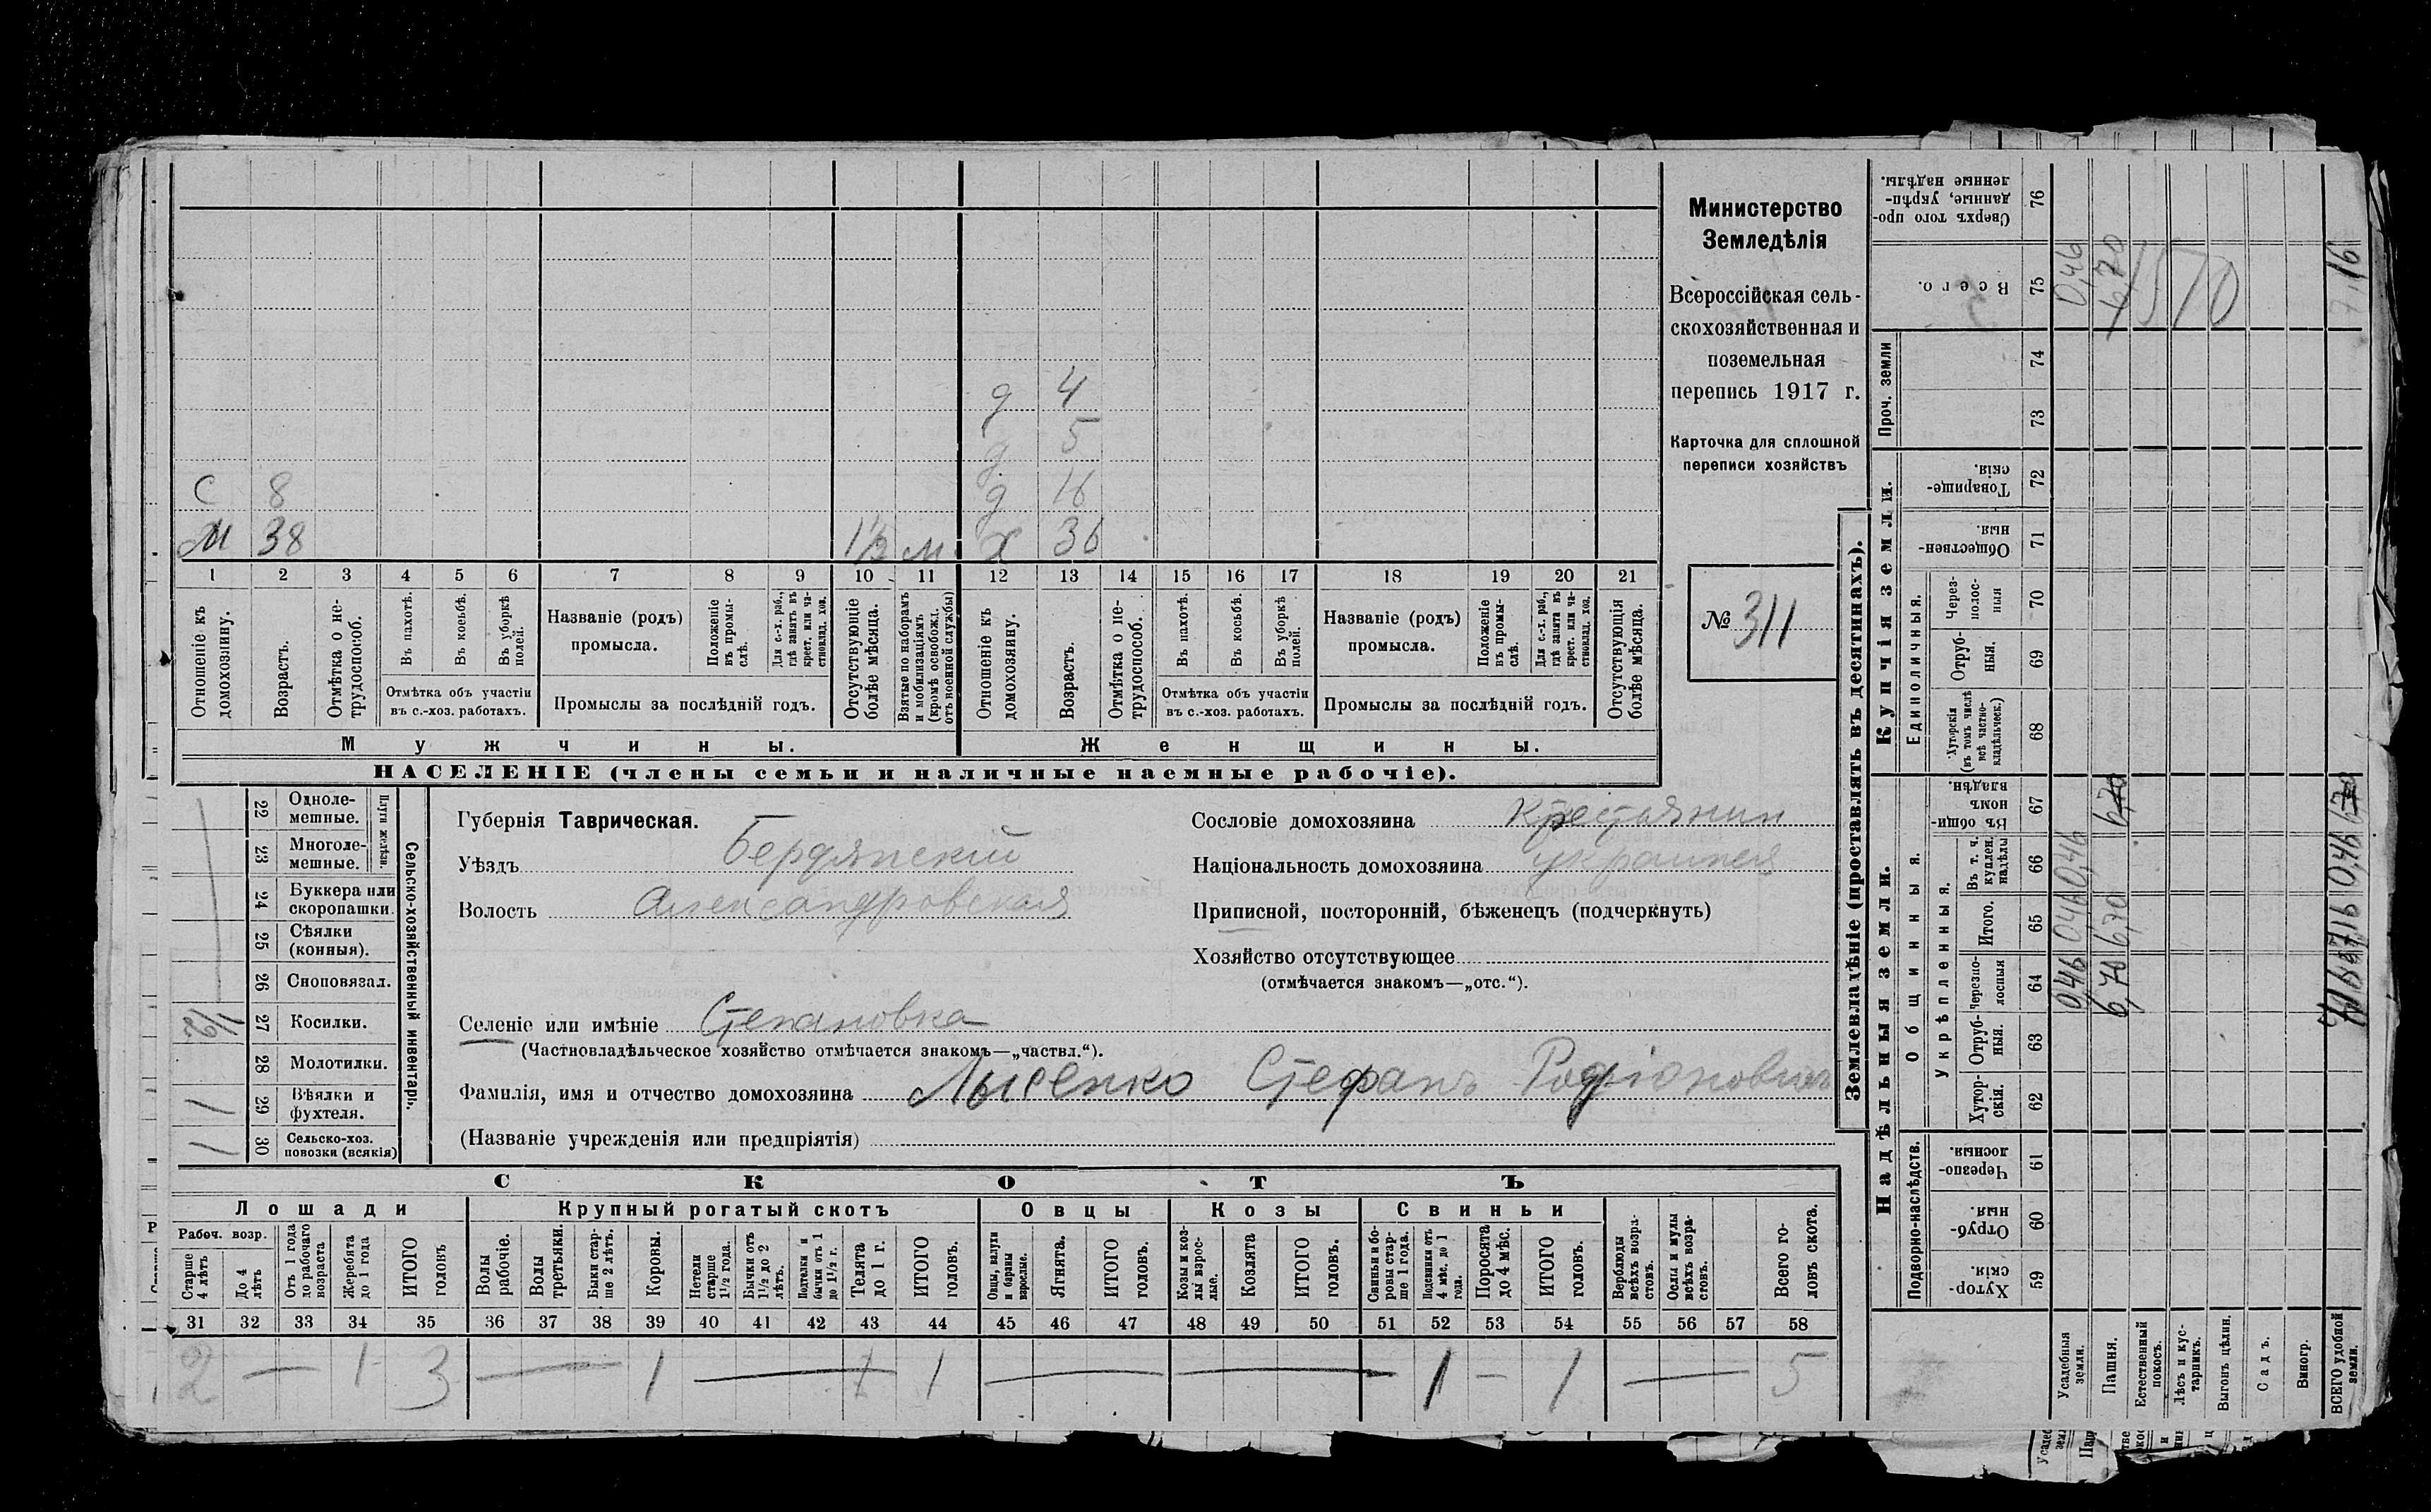 д 4
д 5
С 8 д 16
М 38 1½ м. Х 36
1 2 3 4 5 6 7 8 9 10 11 12 13 14 15 16 17 18 19 20 21
Отношеніе къ домохозяину.
Возрастъ.
Отмѣтка о не-
трудоспособ.
Въ пахотѣ.
Въ косьбѣ.
Въ уборкѣ
полей.
Отмѣтка объ участіи
въ с.-хоз. работахъ.
Названіе (родъ)
промысла.
Положеніе
въ промы-
слѣ.
Для с.-х. раб.,
гдѣ занятъ въ
крест. или ча-
стновлад. хоз.
Промыслы за послѣдній годъ.
Отсутствующіе
болѣе мѣсяца.
Взятые по наборамъ
и мобилизаціямъ
(кромѣ освобожд.
отъ военной службы)
Отношеніе къ
домохозяину.
Возрастъ.
Отмѣтка о не-
трудоспособ.
Въ пахотѣ.
Въ косьбѣ.
Въ уборкѣ
полей.
Отмѣтка объ участіи
въ с.-хоз. работахъ.
Названіе (родъ)
промысла.
Положеніе
въ промы-
слѣ.
Для с.-х. раб.,
гдѣ занята въ
крест. или ча-
стновлад. хоз.
Промыслы за послѣдній годъ.
Отсутствующія
болѣе мѣсяца.
Мужчины.
Женщины.
НАСЕЛЕНІЕ (члены семьи и наличные наемные рабочіе).
Министерство
Земледѣлія
Всероссійская сель-
скохозяйственная и
поземельная
перепись 1917 г.
Карточка для сплошной
переписи хозяйствъ
№ 311
22 Одноле-
мешные.
23 Многоле-
мешные.
Плуги желѣзн.
24 Буккера или
скоропашки.
25 Сѣялки
(конныя).
26 Сноповязал.
1/2 27 Косилки.
28 Молотилки.
1 29 Вѣялки и
фухтеля.
1 30 Сельско-хоз.
повозки (всякія)
Сельско-хозяйственный инвентарь.
Губернія Таврическая.
Уѣздъ Бердянскій
Волость Александровская
Сословіе домохозяина крестьянин
Національность домохозяина украинец
Приписной, посторонній, бѣженецъ (подчеркнуть)
Хозяйство отсутствующее
(отмѣчается знакомъ—„отс.“).
Селеніе или имѣніе Степановка
(Частновладѣльческое хозяйство отмѣчается знакомъ—„частвл.“).
Фамилія, имя и отчество домохозяина Лысенко Стефанъ Родіоновичъ
(Названіе учрежденія или предпріятія)
СКОТЪ
Лошади
Крупный рогатый скотъ
Овцы
Козы
Свиньи
Рабоч. возр.
Старше
4 лѣтъ
До 4
лѣтъ
Отъ 1 года
до рабочаго
возраста
Жеребята
до 1 года
ИТОГО
головъ
Волы
рабочіе.
Волы
третьяки.
Быки стар-
ше 2 лѣтъ.
Коровы.
Нетели
старше
1½ года.
Бычки отъ
1½ до 2
лѣтъ.
Подтелки и
бычки отъ 1
до 1½ г.
Телята
до 1 г.
ИТОГО
головъ.
Овцы, валухи
и бараны
взрослые.
Ягнята.
ИТОГО
головъ.
Козы и коз-
лы взрос-
лые.
Козлята
ИТОГО
головъ.
Свиньи и бо-
ровы стар-
ше 1 года.
Подсвинки отъ
4 мѣс. до 1
года.
Поросята
до 4 мѣс.
ИТОГО
головъ.
Верблюды
всѣхъ возра-
стовъ.
Ослы и мулы
всѣхъ возра-
стовъ.
Всего го-
ловъ скота.
31 32 33 34 35 36 37 38 39 40 41 42 43 44 45 46 47 48 49 50 51 52 53 54 55 56 57 58
2 — 1 3 — 1 — 1 1 — — 1 — 1 — 5
Землевладѣніе (проставлять въ десятинахъ).
Надѣльныя земли.
Купчія земли.
Проч. земли
Подворно-наслѣдств.
Общинныя.
Укрѣпленныя.
Единоличныя.
Хутор-
скія.
59
Отруб-
ныя.
60
Черезпо-
лосныя.
61
Хутор-
скія.
62
Отруб-
ныя.
63
Черезпо-
лосныя
64
Итого.
65
Въ т. ч.
куплен.
надѣлы
66
Въ общин-
номъ
владѣн.
67
Хуторскія
(въ томъ числѣ
всѣ частно-
владѣльческ.)
68
Отруб-
ныя.
69
Через-
полос-
ныя
70
Обществен-
ныя.
71
Товарище-
скія.
72
73
74
Всего.
75
Сверхъ того про-
данные, укрѣп-
ленные надѣлы.
76
Усадебныя
земли.
0,46 0,46 0,46 0,46
Пашня.
6,70 6,70 6,70 6,70
Естественный
покосъ.
Лѣсъ и кус-
тарникъ.
Выгонъ цѣлин.
Садъ.
Виногр.
ВСЕГО удобной
земли.
7,16 0,46 7,16